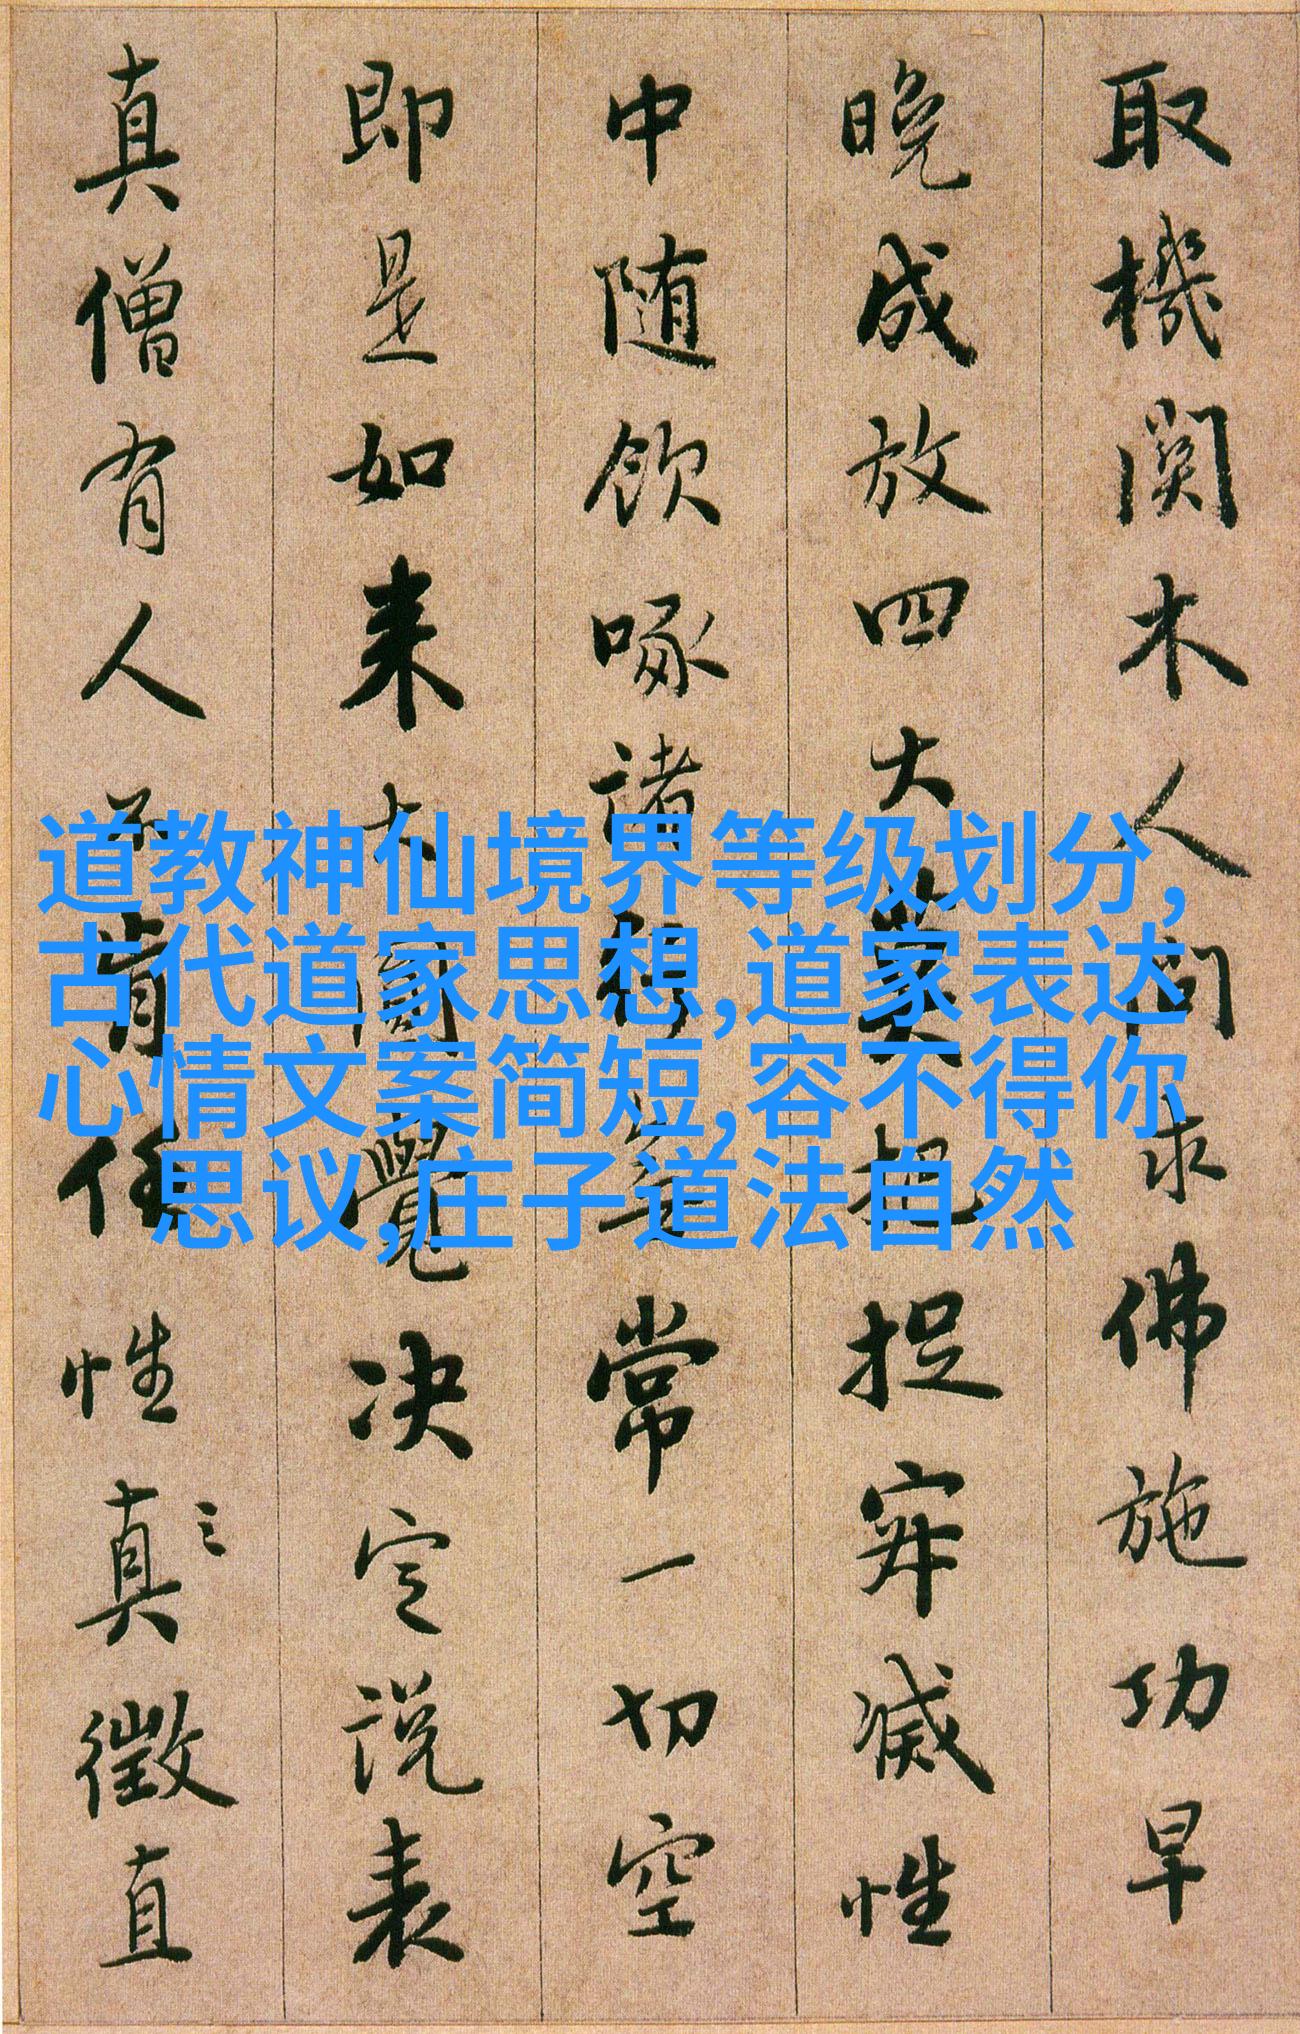 取機関木人問求佛施功早
晚成放四大莫把捉寂滅性
中随飲啄諸行無常一切空
即是如来大圓覺决定説表
真僧有人不肯任性真徵直
道教神仙境界等级划分,
古代道家思想,道家表达
心情文案简短,容不得你
思议,庄子道法自然